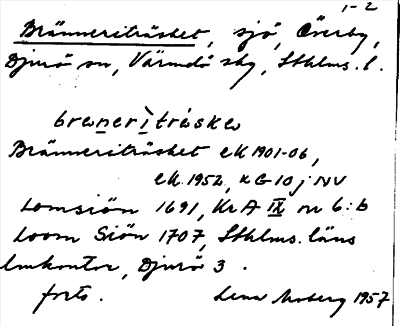 1-2
Bränneriträsket, sjö, Överby,
Djurö sn, Värmdö skg, Sthlms. l.
brenerìtráske
Bränneriträsket ek 1901-06,
ek 1952, KG 10 j NV
Lomsiön 1691, Kr A IX nr 6:b
Loom Siön 1707, Sthlms. läns
lmkontor, Djurö 3.
forts. Lena Moberg 1957